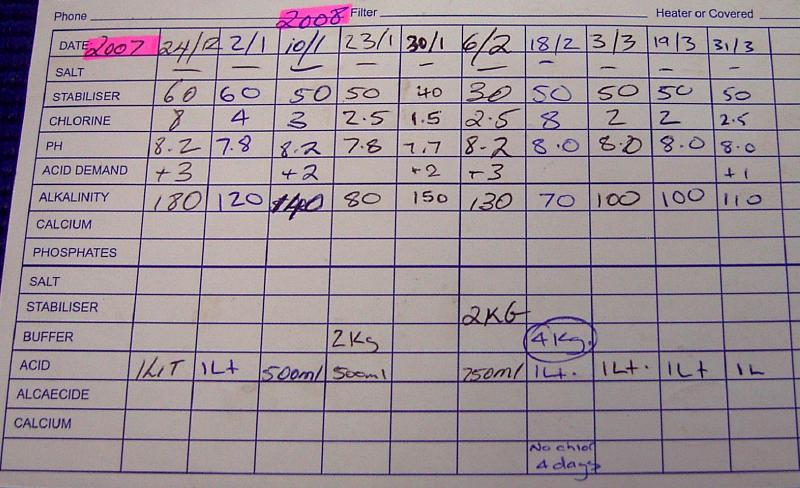 Phone 2008 Filter Heater or Covered
DATE 2007 24/12 2/1 10/1 23/1 30/1 6/2 18/2 3/3 19/3 31/3
SALT — — — — — — — — — —
STABILISER 60 60 50 50 40 30 50 50 50 50
CHLORINE 8 4 3 2.5 1.5 2.5 8 2 2 2.5
PH 8.2 7.8 8.2 7.8 7.7 8.2 8.0 8.0 8.0 8.0
ACID DEMAND +3 +2 +2 +3 +1
ALKALINITY 180 120 140 80 150 130 70 100 100 110
CALCIUM
PHOSPHATES
SALT
STABILISER 2KG
BUFFER 2Kg 4Kg.
ACID 1LIT 1Lt 500ml 500ml 750ml 1Lt. 1Lt. 1Lt 1L
ALCAECIDE
CALCIUM
No chlor
4 days